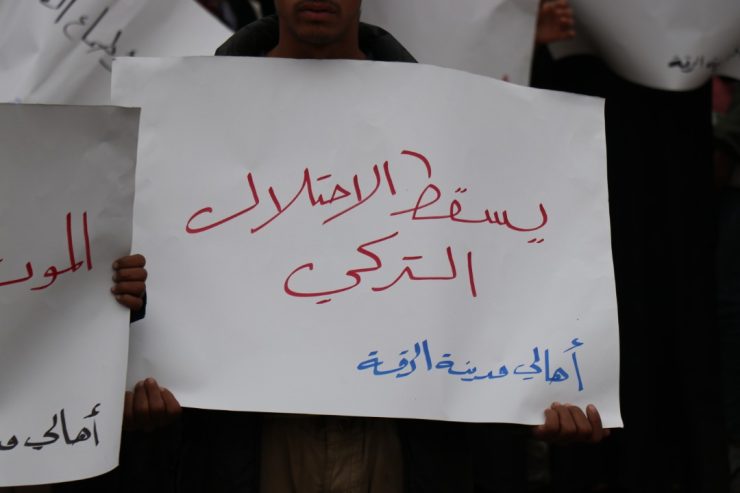 يسقط الاحتلال
التركي
أهالي مدينة الرقة
الموت
أهالي